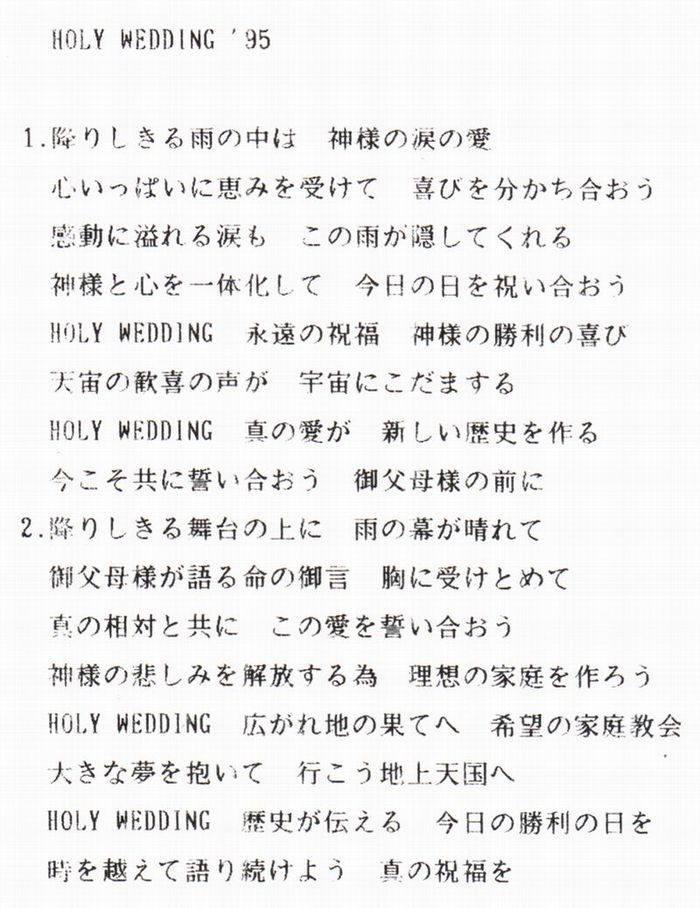 HOLY WEDDING '95
1.降りしきる雨の中は　神様の涙の愛
心いっぱいに恵みを受けて　喜びを分かち合おう
感動に溢れる涙も　この雨が隠してくれる
神様と心を一体化して　今日の日を祝い合おう
HOLY WEDDING　永遠の祝福　神様の勝利の喜び
天宙の歓喜の声が　宇宙にこだまする
HOLY WEDDING　真の愛が　新しい歴史を作る
今こそ共に誓い合おう　御父母様の前に
2.降りしきる舞台の上に　雨の幕が晴れて
御父母様が語る命の御言　胸に受けとめて
真の相対と共に　この愛を誓い合おう
神様の悲しみを解放する為　理想の家庭を作ろう
HOLY WEDDING　広がれ地の果てへ　希望の家庭教会
大きな夢を抱いて　行こう地上天国へ
HOLY WEDDING　歴史が伝える　今日の勝利の日を
時を越えて語り続けよう　真の祝福を